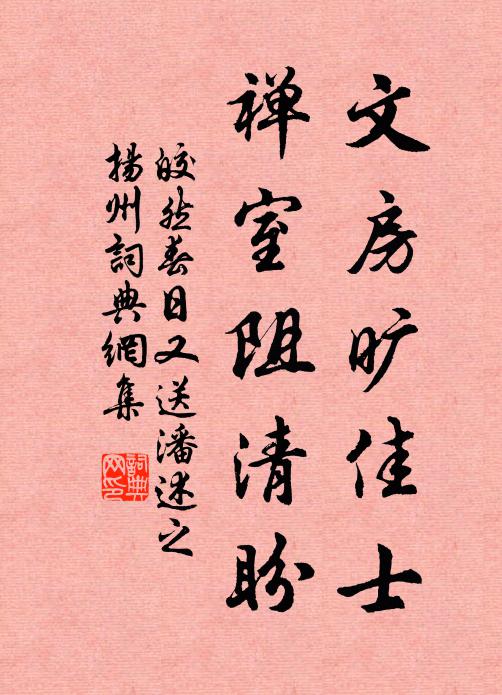 文房旷佳士
禅室阻清盼
皎然春日又送潘述之
揚州詞典網集
詞典网印